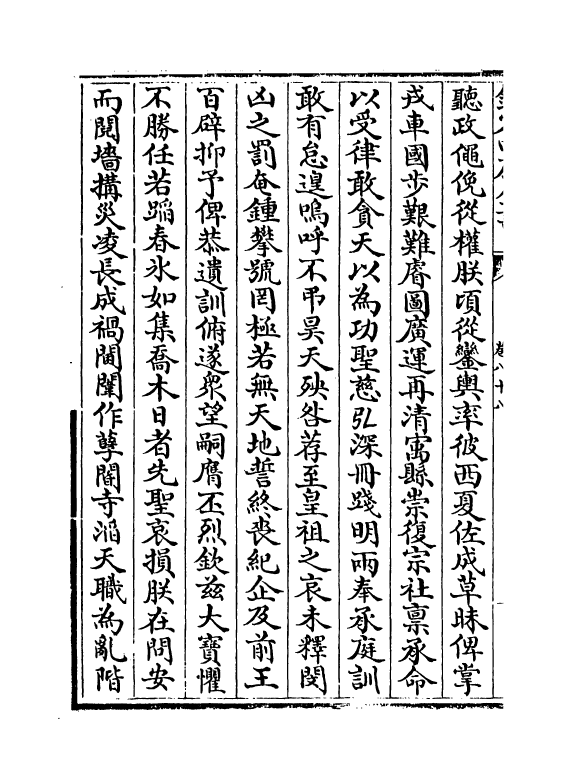 聽政僶俛從權朕頃從鑾輿率彼西夏佐成草昧俾掌
戎車國歩艱難睿圖廣運再清寓縣崇復宗社禀承命
以受律敢貪天以為功聖慈弘深冊踐明兩奉承庭訓
敢有怠遑嗚呼不弔昊天殃咎荐至皇祖之哀未釋閔
凶之罰奄鍾攀號罔極若無天地誓終喪紀企及前王
百辟抑予俾恭遺訓俯遂衆望嗣膺丕烈欽兹大寶懼
不勝任若蹈春氷如集喬木日者先聖哀損朕在問安
而鬩墻搆災凌長成禍閫闈作孽閽寺滔天職為亂階
卷八十八